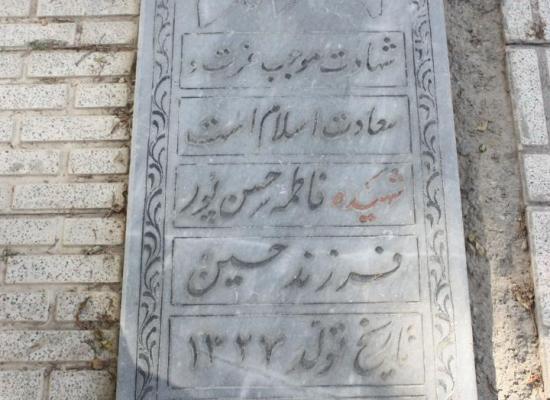 شهادت موجب عزت و
سعادت اسلام است
شهیده فاطمه حسن پور
فرزند حسین
تاریخ تولد ۱۳۲۷